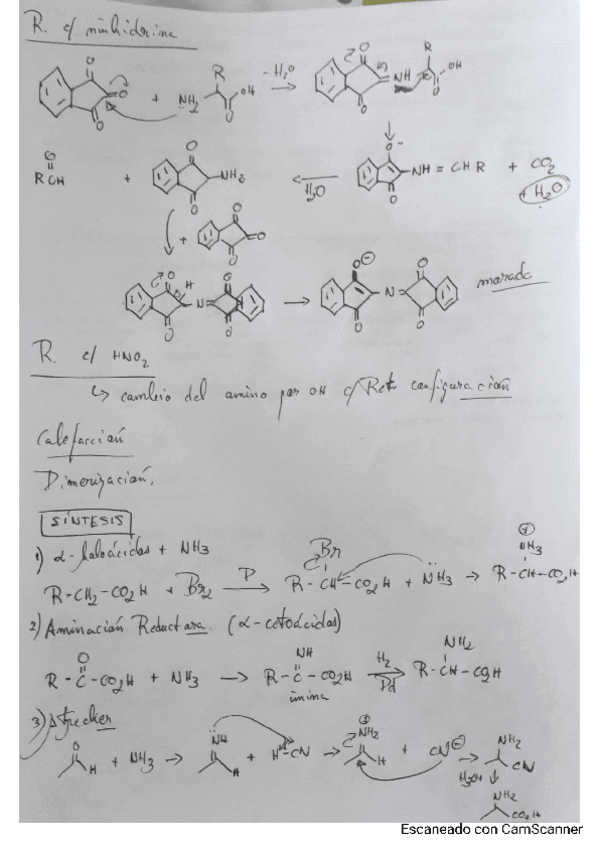 R. c/ ninhidrina
O O R O
O + NH2 OH - H2O NH OH
O O O O
O O O-
R C H + NH2 NH = CHR + CO2
O H2O O + H2O
+ O O O
O H O O⊖ O
N N morado
O O O O
R. c/ HNO2
↳ cambio del amino por OH c/ Ret configuración
Calefacción
Dimerización.
SÍNTESIS
1) α-haloácidos + NH3
Br ⊕ NH3
R-CH2-CO2H + Br2 P → R-CH-CO2H + N̈H3 → R-CH-CO2H
2) Aminación Reductora. (α-cetoácidos)
O NH NH2
R-C-CO2H + NH3 → R-C-CO2H H2 Pd R-CH-CO2H
imina
3) Strecker
O H + NH3 → N̈H H + H-CN → ⊕ NH2 H + CN⊖ → NH2 CN
H3O+ ↓
NH2
CO2H
Escaneado con CamScanner